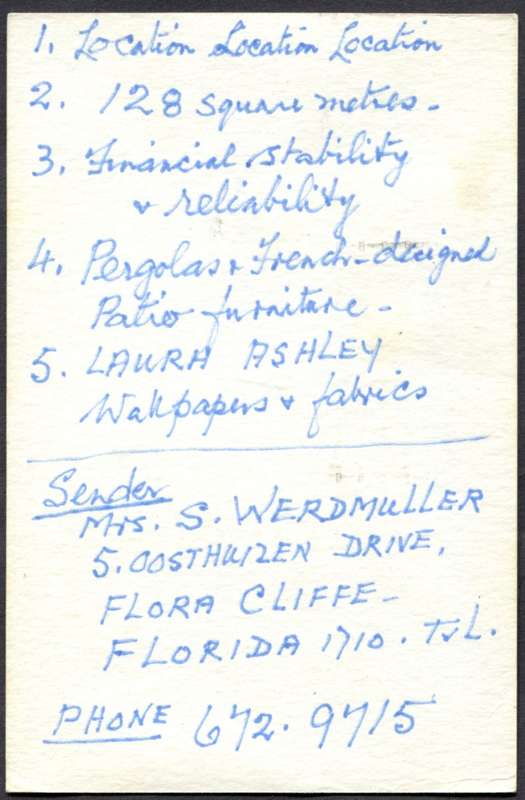 1. Location Location Location
2. 128 square metres -
3. Financial stability
& reliability
4. Pergolas & French-designed
Patio furniture -
5. LAURA ASHLEY
Wallpapers & fabrics
Sender
Mrs. S. WERDMULLER
5. OOSTHUIZEN DRIVE,
FLORA CLIFFE -
FLORIDA 1710. TVL.
PHONE 672. 9715